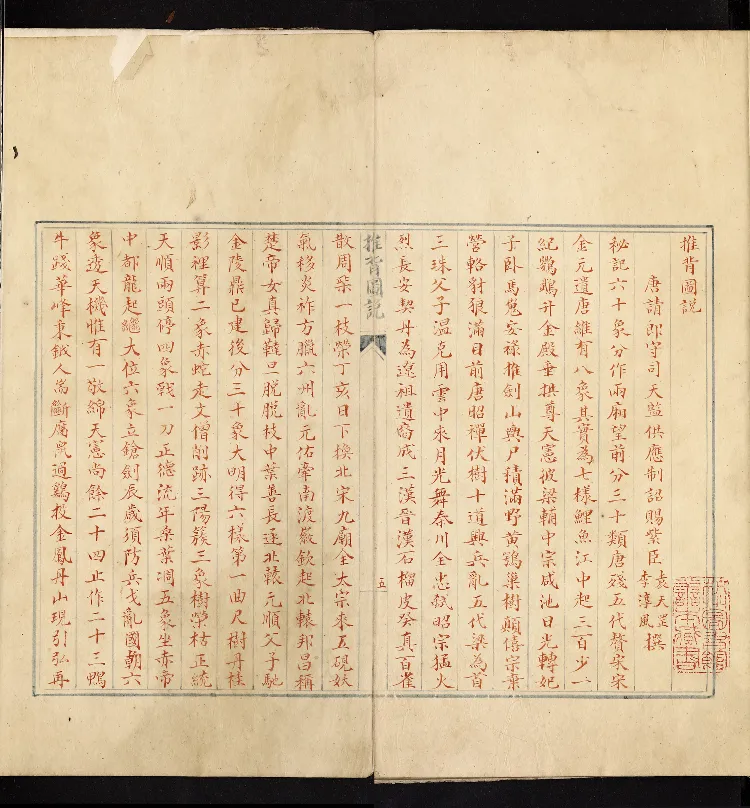 推背圖說
唐請郎守司天監供應制詔賜紫臣袁天罡李淳風撰
秘記六十象分作兩廂望前分三十類唐殘五代贅宋宋
金元還唐維有八象其實為七樣鯉魚江中起三百少一
紀鸚鵡升金殿垂拱尊天憲彼梁輔中宗咸池日光轉妃
子卧馬嵬安祿推劍山輿尸積滿野黃鴉巢樹顛僖宗棄
營輅豺狼滿目前唐昭禪伏樹十道興兵亂五代梁為首
三珠父子溫克用雲中來月光舞秦川全忠弒昭宗猛火
烈長安契丹為遼祖遺裔成三漢晉漢石榴皮癸真百雀
推背圖說
五
散周柴一枝榮丁亥日下換北宋九廟全太宗來五硯妖
氣移炎祚方臘六州亂元佑牽南渡徽欽起北轅邦昌稱
楚帝女真歸韃旦脫脫枝中葉善長逐北轅元順父子馳
金陵鼎已建後分三十象大明得六樣第一曲尺樹丹桂
影裡算二象赤蛇走文僧削跡三陽簇三象樹榮枯正統
天順兩頭停四象戰一刀正德流年桑葉凋五象坐赤帝
中都龍起繼大位六象立鎗劍辰歲須防兵戈亂國朝六
象透天機惟有一敬綿天憲尚餘二十四止作二十三鴨
牛踐華峰東鉞人當斷腐鼠過鷄投金鳳丹山現引弘再